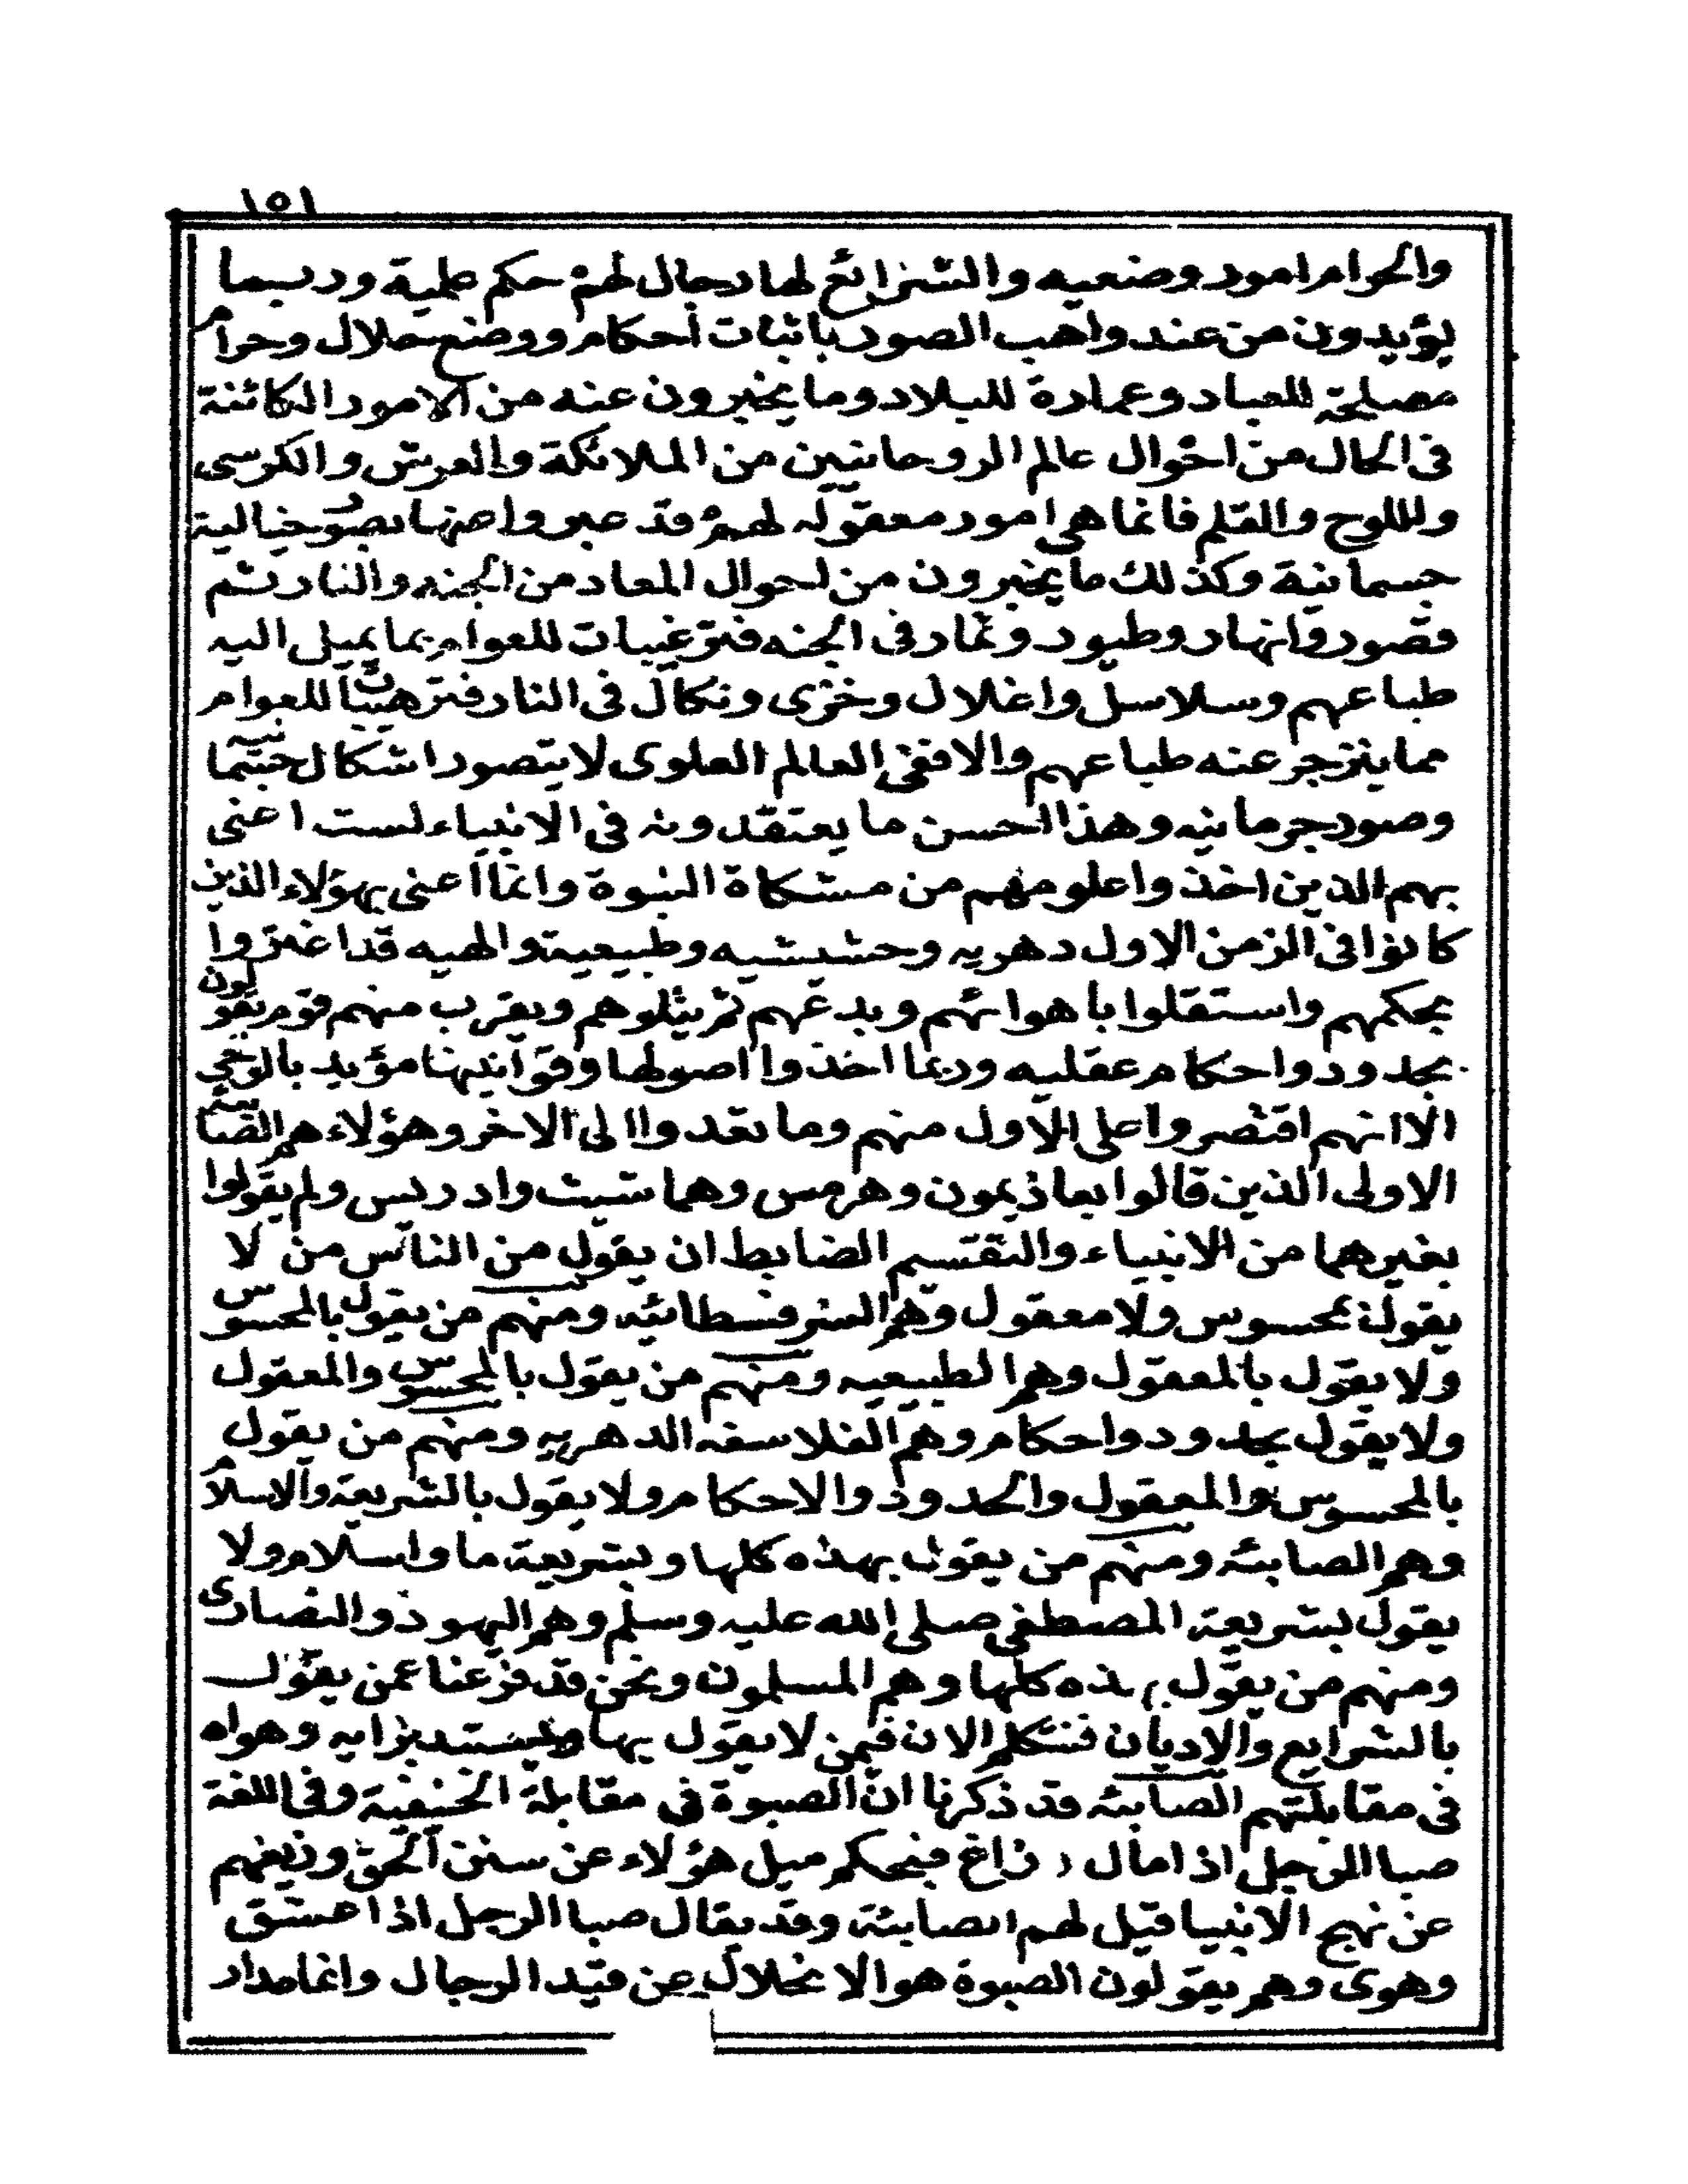 ١٥١
والحرام امور وضعيه والشرائع لها رجال لهم حكم علمية وربما
يؤيدون من عند واهب الصور باثبات احكام ووضع حلال وحرام
مصلحة للعباد وعمارة للبلاد وما يخبرون عنه من الامور الكائنة
فى الحال من احوال عالم الروحانيين من الملائكة والعرش والكرسى
واللوح والقلم فانما هى امور معقوله لهم قد عبروا عنها بصور خيالية
جسمانية وكذلك ما يخبرون من احوال المعاد من الجنه والنار ثم
قصور وانهار وطيور وثمار فى الجنه فترغيبات للعوام بما يميل اليه
طباعهم وسلاسل واغلال وخزى ونكال فى النار فترهيبات للعوام
مما ينزجر عنه طباعهم والا ففى العالم العلوى لا يتصور اشكال جسمانيه
وصور جرمانيه وهذا الحسن ما يعتقدونه فى الانبياء لست اعنى
بهم الذين اخذوا علومهم من مشكاة النبوة وانما اعنى بهؤلاء الذين
كانوا فى الزمن الاول دهريه وحشيشيه وطبيعية والهيه قد اغتروا
بحكمهم واستقلوا باهوائهم وبدعهم ثم يتلوهم ويقرب منهم قوم يقولون
بحدود واحكام عقليه وربما اخذوا اصولها وقوانينها مؤيد بالوحى
الا انهم اقتصروا على الاول منهم وما تعدوا الى الاخر وهؤلاء هم الصابئة
الاولى الذين قالوا بعاذيمون وهرمس وهما شيث وادريس ولم يقولوا
بغيرهما من الانبياء والتقسيم الضابط ان يقول من الناس من لا
يقول بمحسوس ولا معقول وهم السوفسطائيه ومنهم من يقول بالمحسوس
ولا يقول بالمعقول وهم الطبيعيه ومنهم من يقول بالمحسوس والمعقول
ولا يقول بحدود واحكام وهم الفلاسفه الدهريه ومنهم من يقول
بالمحسوس والمعقول والحدود والاحكام ولا يقول بالشريعة والاسلام
وهم الصابئه ومنهم من يقول بهذه كلها وبشريعة ما واسلام ولا
يقول بشريعة المصطفى صلى الله عليه وسلم وهم اليهود والنصارى
ومنهم من يقول بهذه كلها وهم المسلمون ونحن قد فرغنا عمن يقول
بالشرايع والاديان فنتكلم الان فيمن لا يقول بها ويستبد برايه وهواه
فى مقابلتهم الصابئه قد ذكرنا ان الصبوة فى مقابلة الحنيفية وفى اللغة
صبا الرجل اذا مال و زاغ فبحكم ميل هؤلاء عن سنن الحق وزيغهم
عن نهج الانبيا قيل لهم الصابئة وقد يقال صبا الرجل اذا عشق
وهوى وهم يقولون الصبوة هو الانحلال عن قيد الرجال وانما مدار